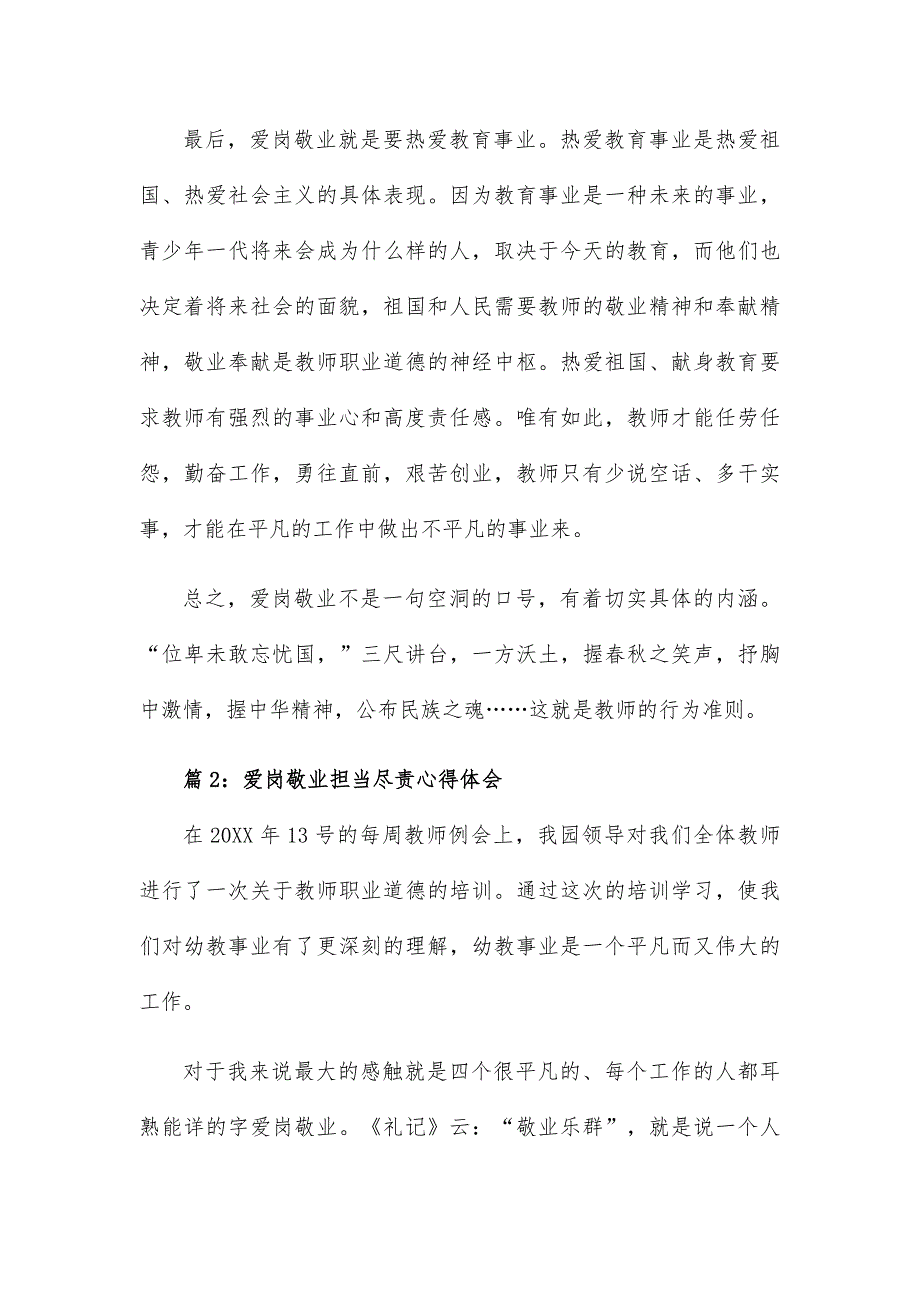 最后，爱岗敬业就是要热爱教育事业。热爱教育事业是热爱祖
国、热爱社会主义的具体表现。因为教育事业是一种未来的事业，
青少年一代将来会成为什么样的人，取决于今天的教育，而他们也
决定着将来社会的面貌，祖国和人民需要教师的敬业精神和奉献精
神，敬业奉献是教师职业道德的神经中枢。热爱祖国、献身教育要
求教师有强烈的事业心和高度责任感。唯有如此，教师才能任劳任
怨，勤奋工作，勇往直前，艰苦创业，教师只有少说空话、多干实
事，才能在平凡的工作中做出不平凡的事业来。
总之，爱岗敬业不是一句空洞的口号，有着切实具体的内涵。
“位卑未敢忘忧国，”三尺讲台，一方沃土，握春秋之笑声，抒胸
中激情，握中华精神，公布民族之魂……这就是教师的行为准则。
篇2：爱岗敬业担当尽责心得体会
在 20XX 年 13 号的每周教师例会上，我园领导对我们全体教师
进行了一次关于教师职业道德的培训。通过这次的培训学习，使我
们对幼教事业有了更深刻的理解，幼教事业是一个平凡而又伟大的
工作。
对于我来说最大的感触就是四个很平凡的、每个工作的人都耳
熟能详的字爱岗敬业。《礼记》云：“敬业乐群”，就是说一个人